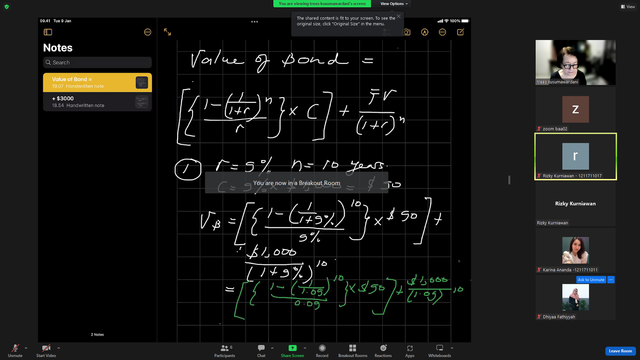 You are viewing
View Options
View
The shared content is fit to your screen. To see the
original size, click "Original Size" in the menu.
09.41 Tue 9 Jan
Notes
Search
Value of Bond
Handwritten note
+ $3000
18.54 Handwritten note
2 Notes
Value of Bond =
[{1-(1/1+r)^n / r} x C] + FV/(1+r)^n
① r = 9% n = 10 years
You are now in a Breakout Room
V_B = [{1-(1/1+9%)^10 / 9%} x $90] +
$1,000/(1+9%)^10
= [{1-(1/1.09)^10 / 0.09} x $90] + $1,000/(1.09)^10
z
zoom baa02
r
Rizky Kurniawan - 1211711017
Rizky Kurniawan
Rizky Kurniawan
Karina Ananda - 1211711011
Ask to Unmute
Dhyaa Fathiyyah
Unmute
Start Video
Participants
6
Chat
Share Screen
Record
Breakout Rooms
Reactions
Apps
Whiteboards
Leave Room